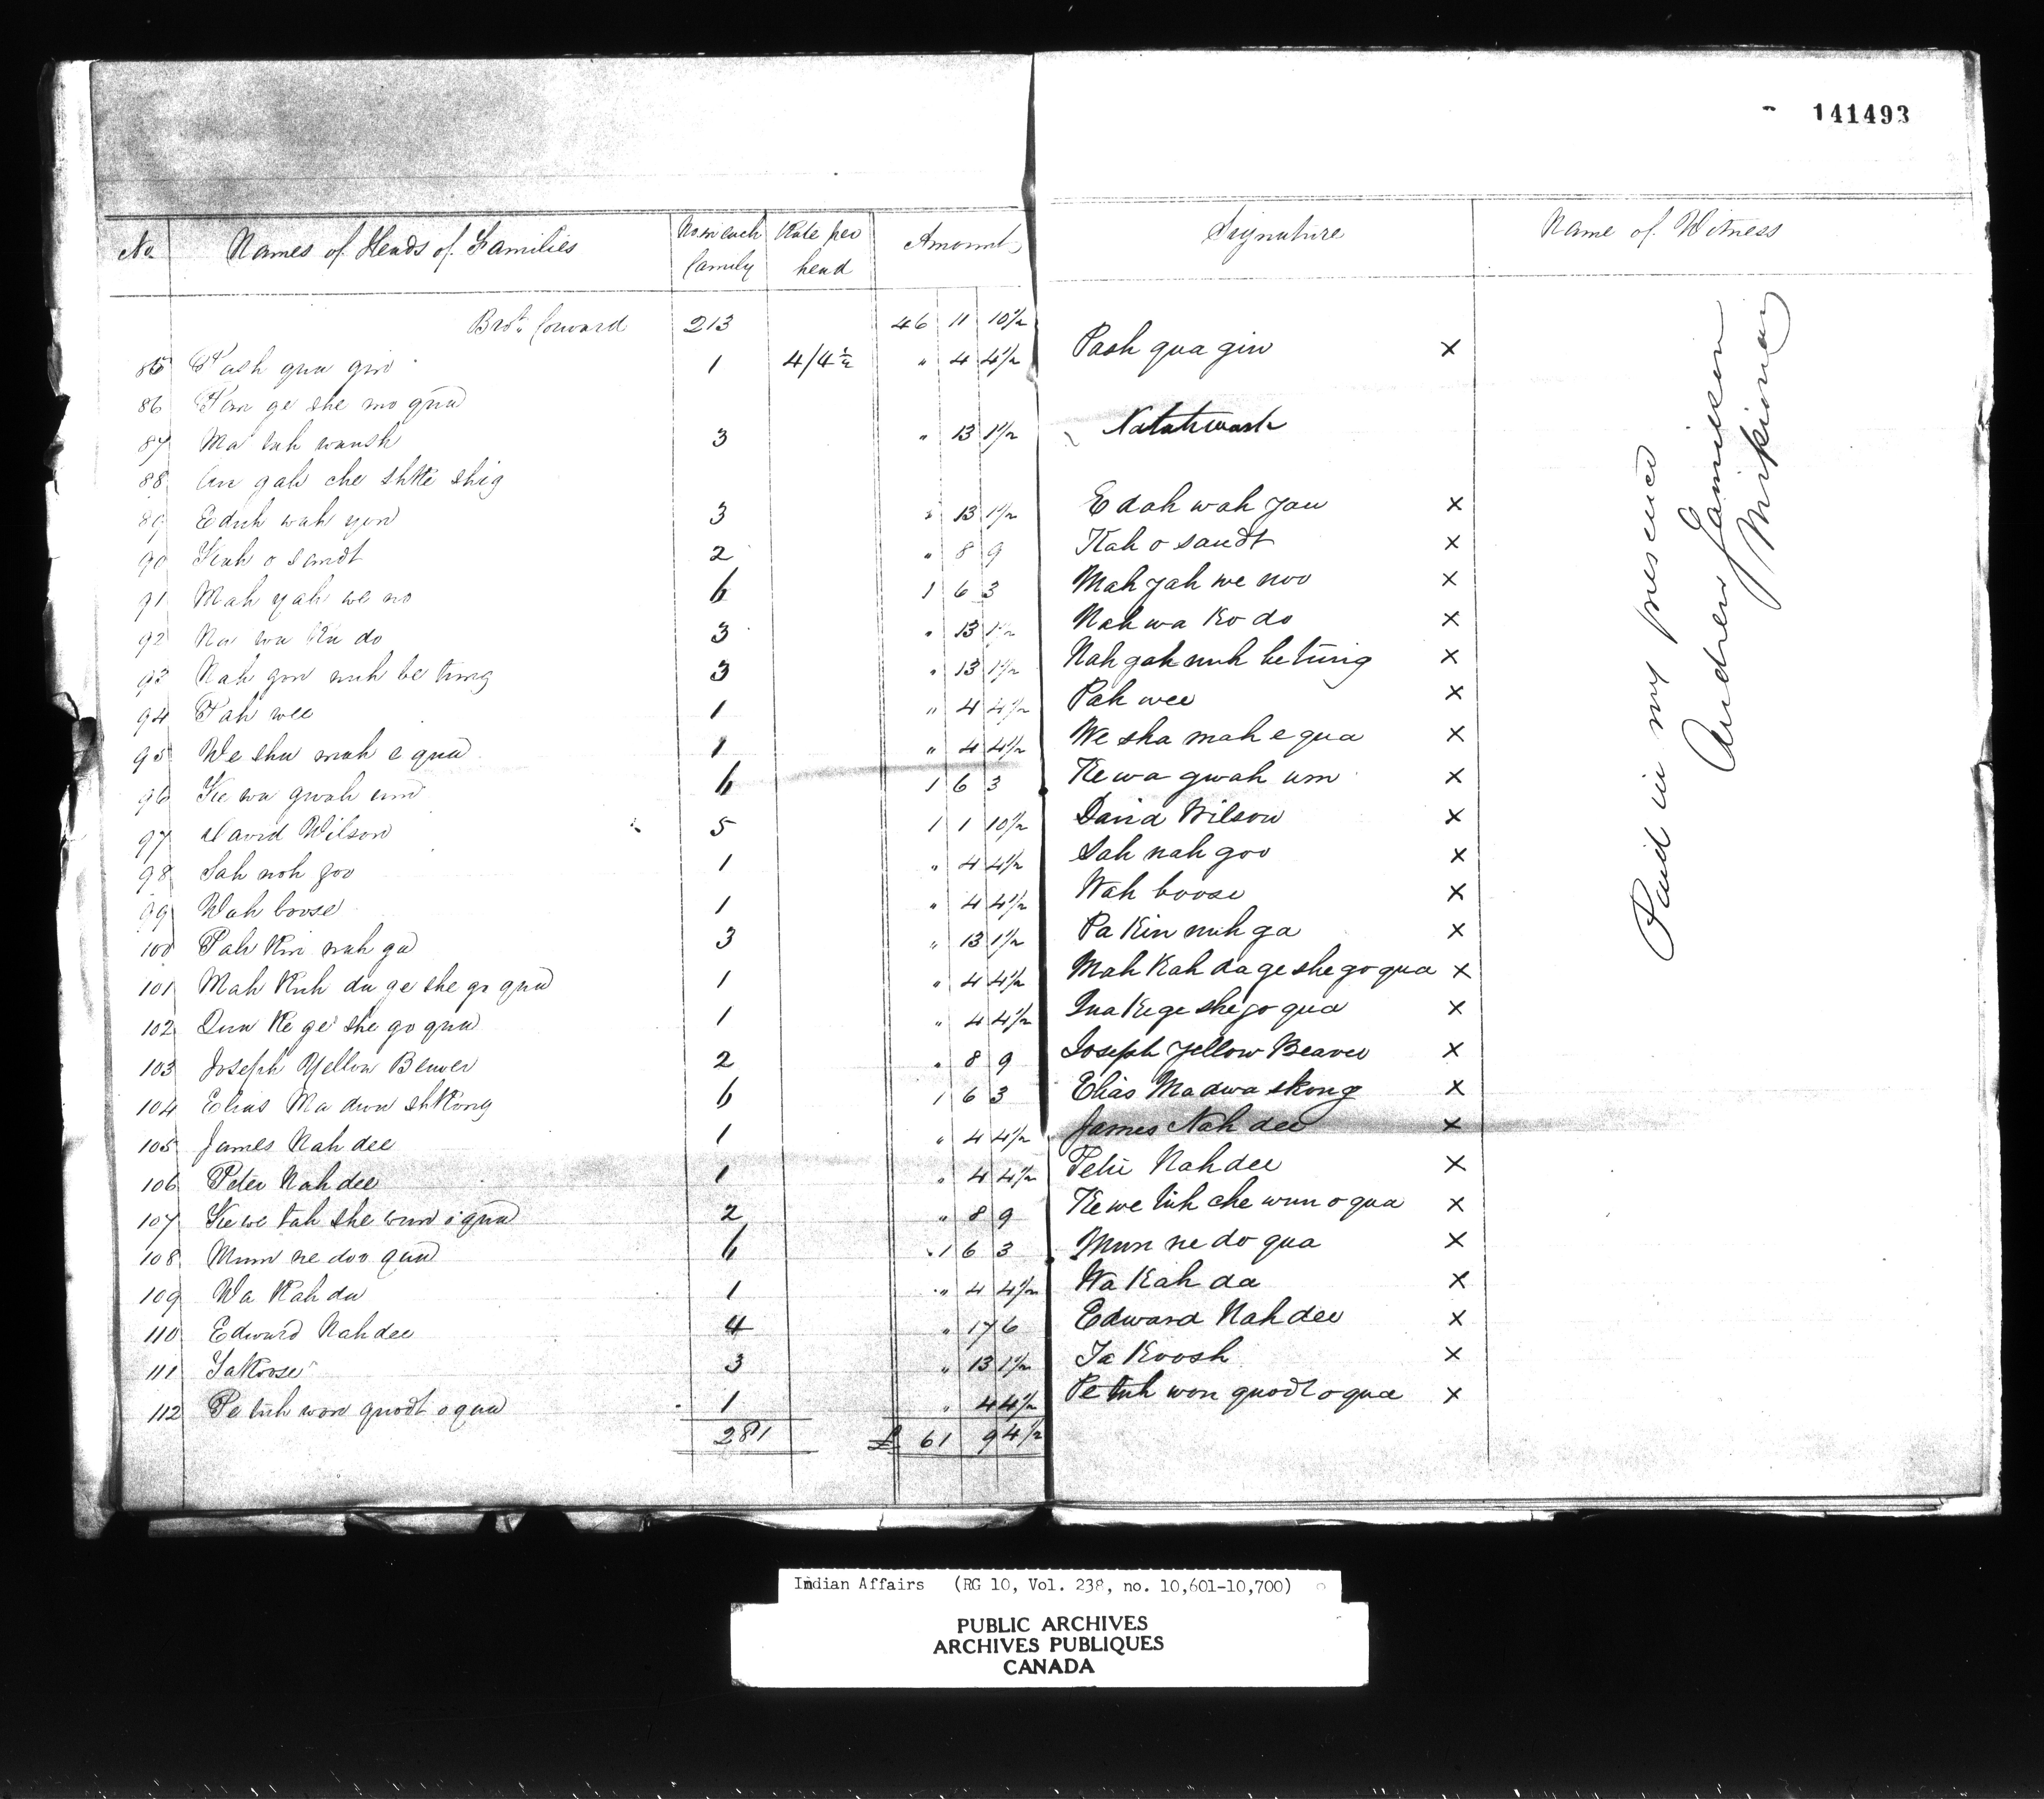 141493
No Names of Heads of Families No in each family Rate per head Amount Signature Name of Witness
Brot forward 213 46 11 10½
85 Pash qua gin 1 4/4½ " 4 4½ Pash qua gin ×
86 Pam ge she mo qua
87 Na tah waush 3 " 13 1½ Natahwash
88 An gah che shke shig
89 Edah wah yon 3 " 13 1½ Edah wah yau ×
90 Kah o sandt 2 " 8 9 Kah o saudt ×
91 Mah yah we no 6 1 6 3 Mah yah we noo ×
92 Na wa ku do 3 " 13 1½ Nah wa ko do ×
93 Nah gon nuh be tung 3 " 13 1½ Nah gah nuh be tung ×
94 Pah wee 1 " 4 4½ Pah wee ×
95 We sha mah e qua 1 " 4 4½ We sha mah e qua ×
96 Ke wa gwah um 6 1 6 3 Ke wa gwah um ×
97 David Wilson 5 1 1 10½ David Wilson ×
98 Sah noh goo 1 " 4 4½ Sah nah goo ×
99 Wah boose 1 " 4 4½ Wah boose ×
100 Pah kin nah ga 3 " 13 1½ Pa kin nuh ga ×
101 Mah kah da ge she go qua 1 " 4 4½ Mah kah da ge she go qua ×
102 Qua ke ge she go qua 1 " 4 4½ Qua ke ge she go qua ×
103 Joseph Yellow Beaver 2 " 8 9 Joseph Yellow Beaver ×
104 Elias Ma dwa shkong 6 1 6 3 Elias Madwa skong ×
105 James Nah dee 1 " 4 4½ James Nah dee ×
106 Peter Nah dee 1 " 4 4½ Peter Nah dee ×
107 Ke we tah she wun o qua 2 " 8 9 Ke we tuh che wun o qua ×
108 Mun ne doo qua 6 1 6 3 Mun ne do qua ×
109 Wa kah da 1 " 4 4½ Wa kah da ×
110 Edward Nah dee 4 " 17 6 Edward Nah dee ×
111 Jakoose 3 " 13 1½ Ja koosh ×
112 Pe tuh won quodt o qua 1 " 4 4½ Pe tuh won quodt o qua ×
281 £ 61 9 4½
Paid in my presence
Andrew Jamieson
Missionary
Indian Affairs (RG 10, Vol. 238, no. 10,601-10,700)
PUBLIC ARCHIVES
ARCHIVES PUBLIQUES
CANADA